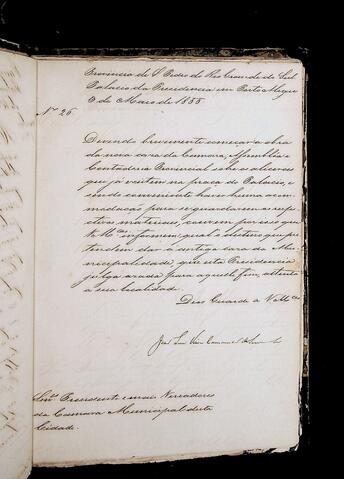 Provincia de S. Pedro do Rio Grande do Sul
Palacio da Presidencia em Porto Alegre
3 de Maio de 1855
Nº 26
Devendo brevemente começar a obra
da nova casa da Camara, Assemblea e
Contadoria Provincial sobre os alicerces
que já existem na praça do Palacio, e
sendo conveniente haver huma acom
modação para se guardarem os respe
ctivos materiaes, convem por isso que
V. Mces informem qual o destino que pre
tendem dar á antiga casa da Mu
nicipalidade, que esta Presidencia
julga azada para aquelle fim, attenta
a sua localidade.
Deos Guarde a V. Mces
Snres Presidente e mais Vereadores
da Camara Municipal desta
Cidade.